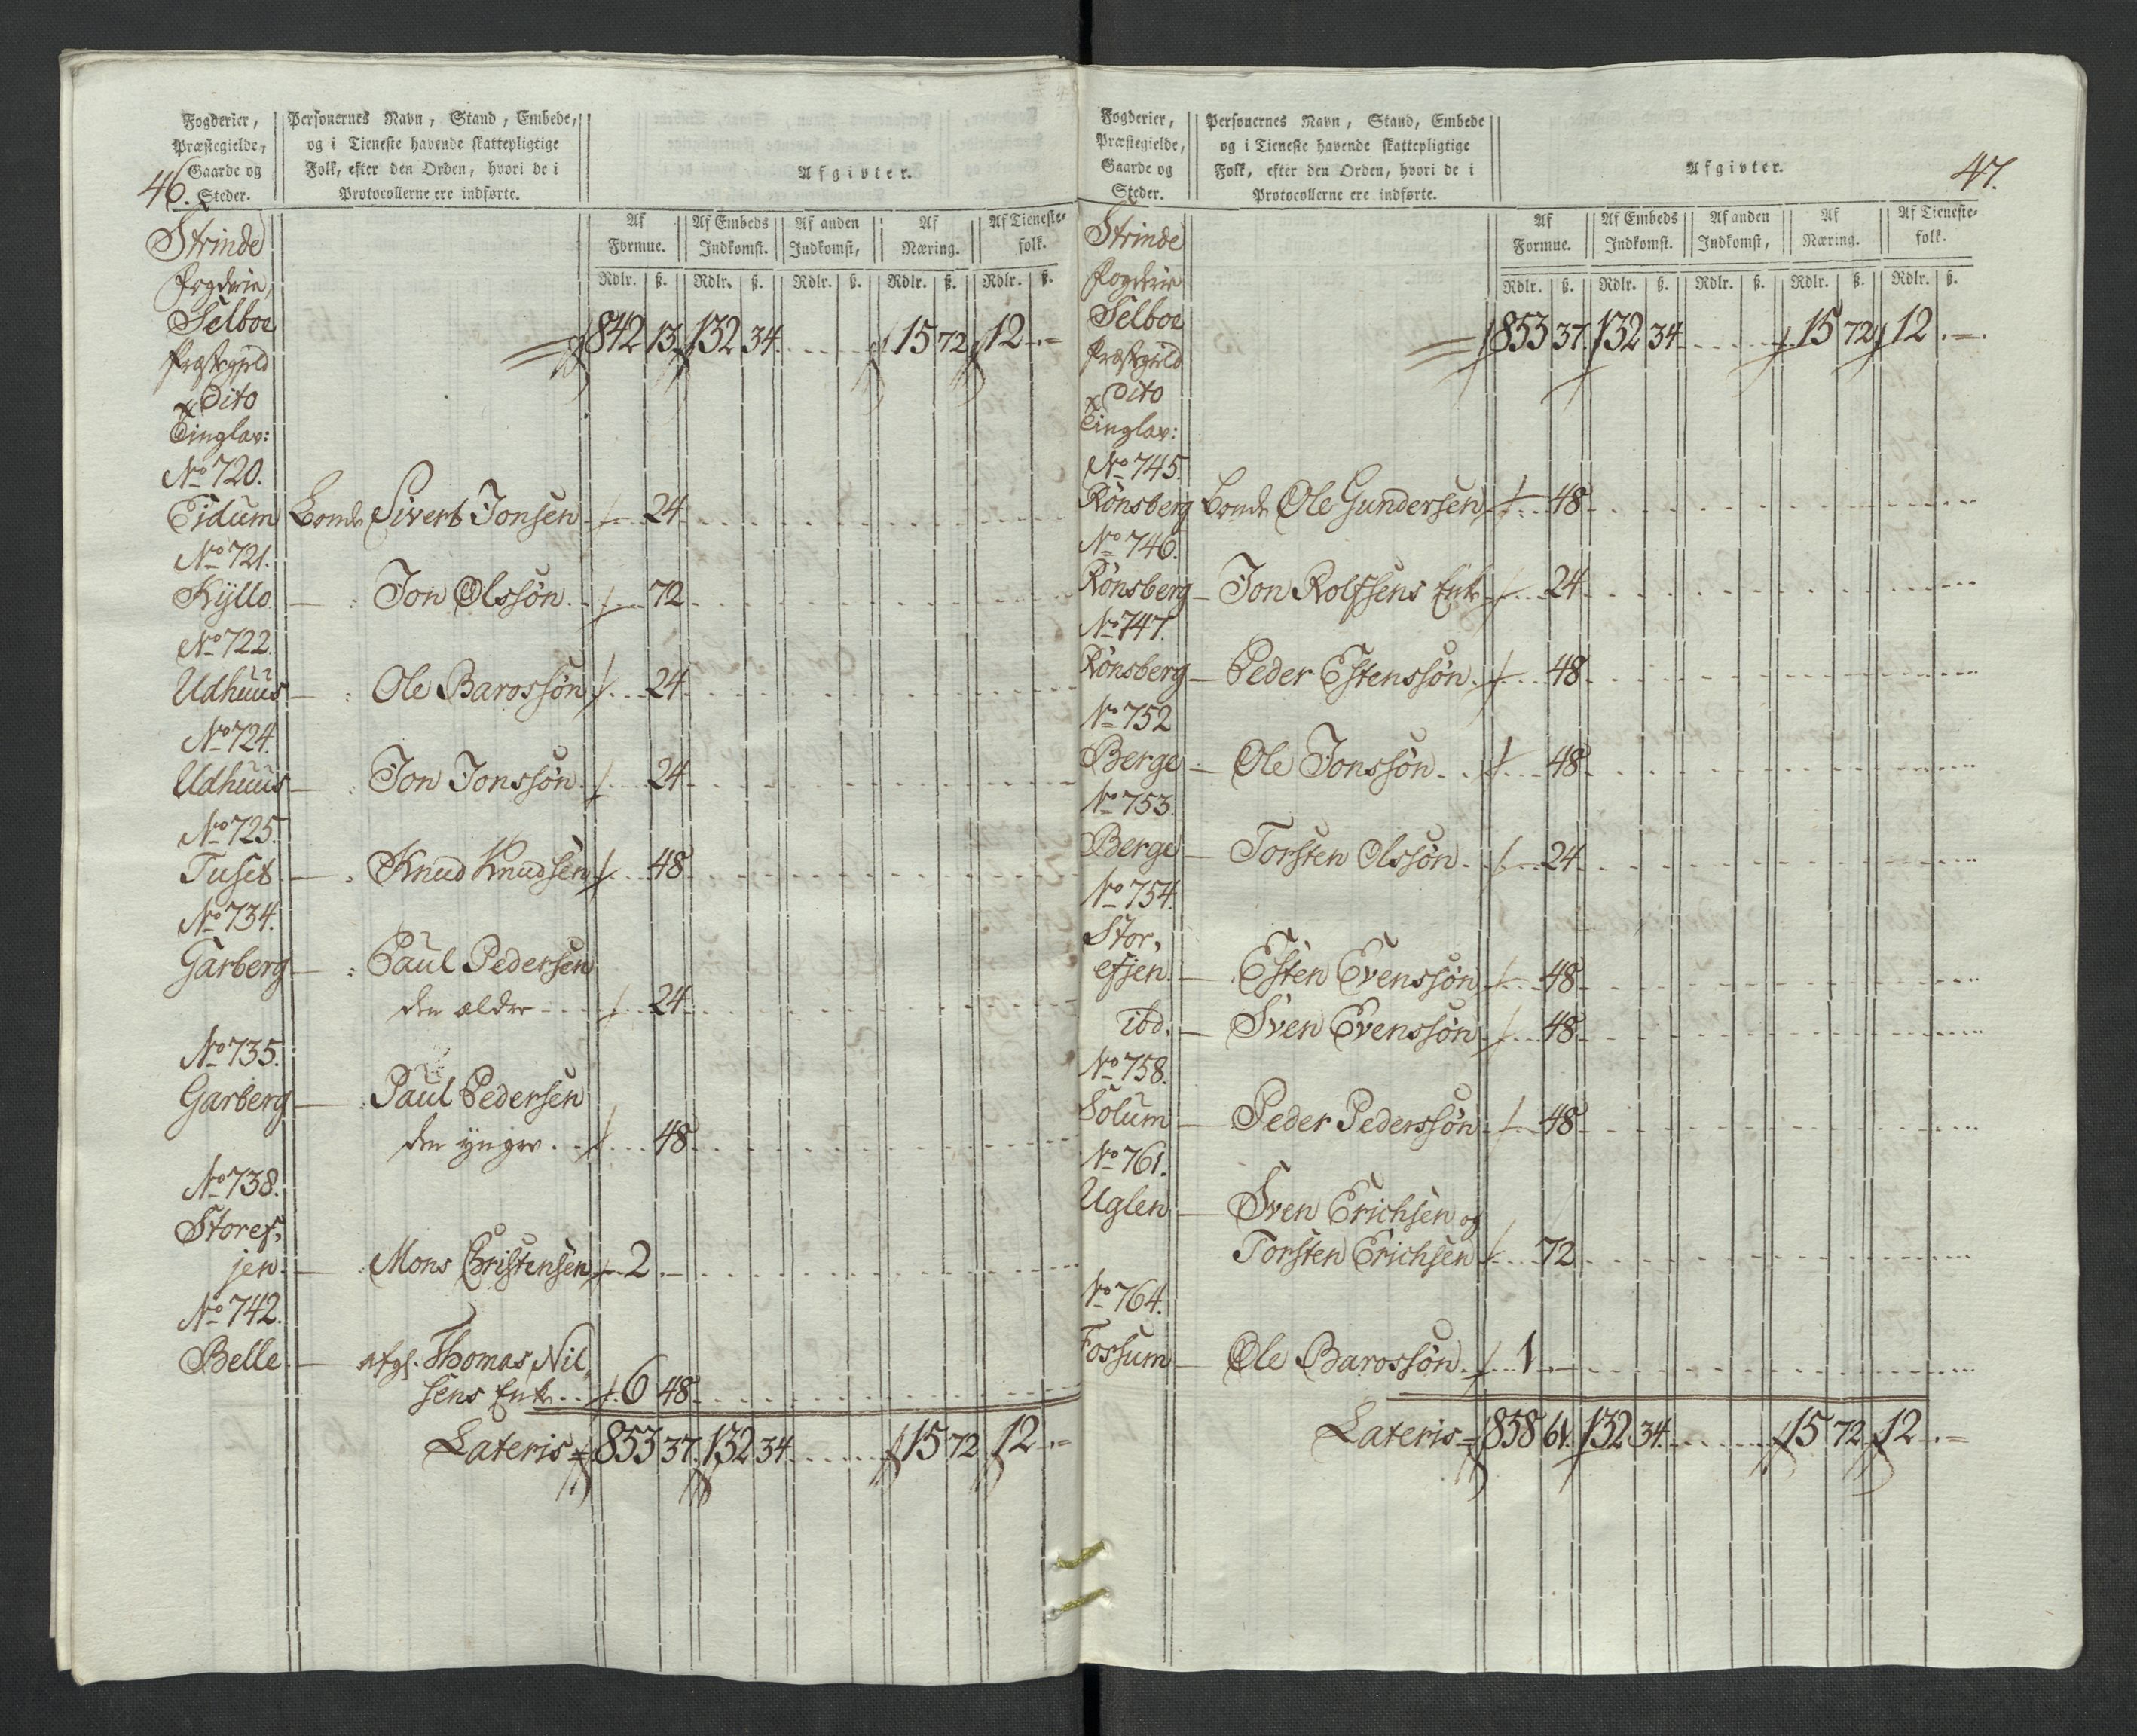 46.
Fogderier,
Præstegielde,
Gaarde og
Steder.
Personernes Navn, Stand, Embede,
og i Tieneste havende skattepligtige
Folk, efter den Orden, hvori de i
Protocollerne ere indførte.
Afgivter.
Af Formue. Af Embeds Indkomst. Af anden Indkomst, Af Næring. Af Tieneste-folk.
Rdlr. ß. Rdlr. ß. Rdlr. ß. Rdlr. ß. Rdlr. ß.
Strinde
Fogderie,
Selboe
Præstegield
842 13. 132 34. 15 72 12 . -
& Dito
Tinglav:
No 720.
Eidum Bonde Sivert Jonsen 24
No 721.
Kyllo — : Jon Olssøn 72
No 722.
Udhuus — : Ole Barossøn 24
No 724.
Udhuus — : Jon Jonssøn 24
No 725.
Tuset — : Knud Knudsen 48
No 734.
Garberg — : Paul Pedersen
den ældre 24
No 735.
Garberg — : Paul Pedersen
den yngre 48
No 738.
Storef,
jen. — : Mons Christensen 2 . -
No 742.
Belle — afgl. Thomas Nil,
sens Enke 6 48
Lateris 853 37. 132 34. 15 72 12 . -
47.
Fogderier,
Præstegielde,
Gaarde og
Steder.
Personernes Navn, Stand, Embede
og i Tieneste havende skattepligtige
Folk, efter den Orden, hvori de i
Protocollerne ere indførte.
Afgivter.
Af Formue. Af Embeds Indkomst. Af anden Indkomst, Af Næring. Af Tieneste-folk.
Rdlr. ß. Rdlr. ß. Rdlr. ß. Rdlr. ß. Rdlr. ß.
Strinde
Fogderie
Selboe
Præstegield
853 37. 132 34 15 72 12 . -
& Dito
Tinglav:
No 745.
Rønsberg Bonde Ole Gundersen 48
No 746.
Rønsberg — Jon Rolfsens Enke 24
No 747.
Rønsberg — Peder Estenssøn 48
No 752
Berge — Ole Jonssøn 48
No 753.
Berge — Torsten Olssøn 24
No 754.
Stor,
efjen — Esten Evenssøn 48
ibd. — Sven Evenssøn 48
No 758.
Solum — Peder Pederssøn 48
No 761.
Uglen — Sven Erichsen og
Torsten Erichsen 72
No 764.
Fossum — Ole Barossøn 1 —
Lateris 858 61. 132 34. 15 72 12 . -